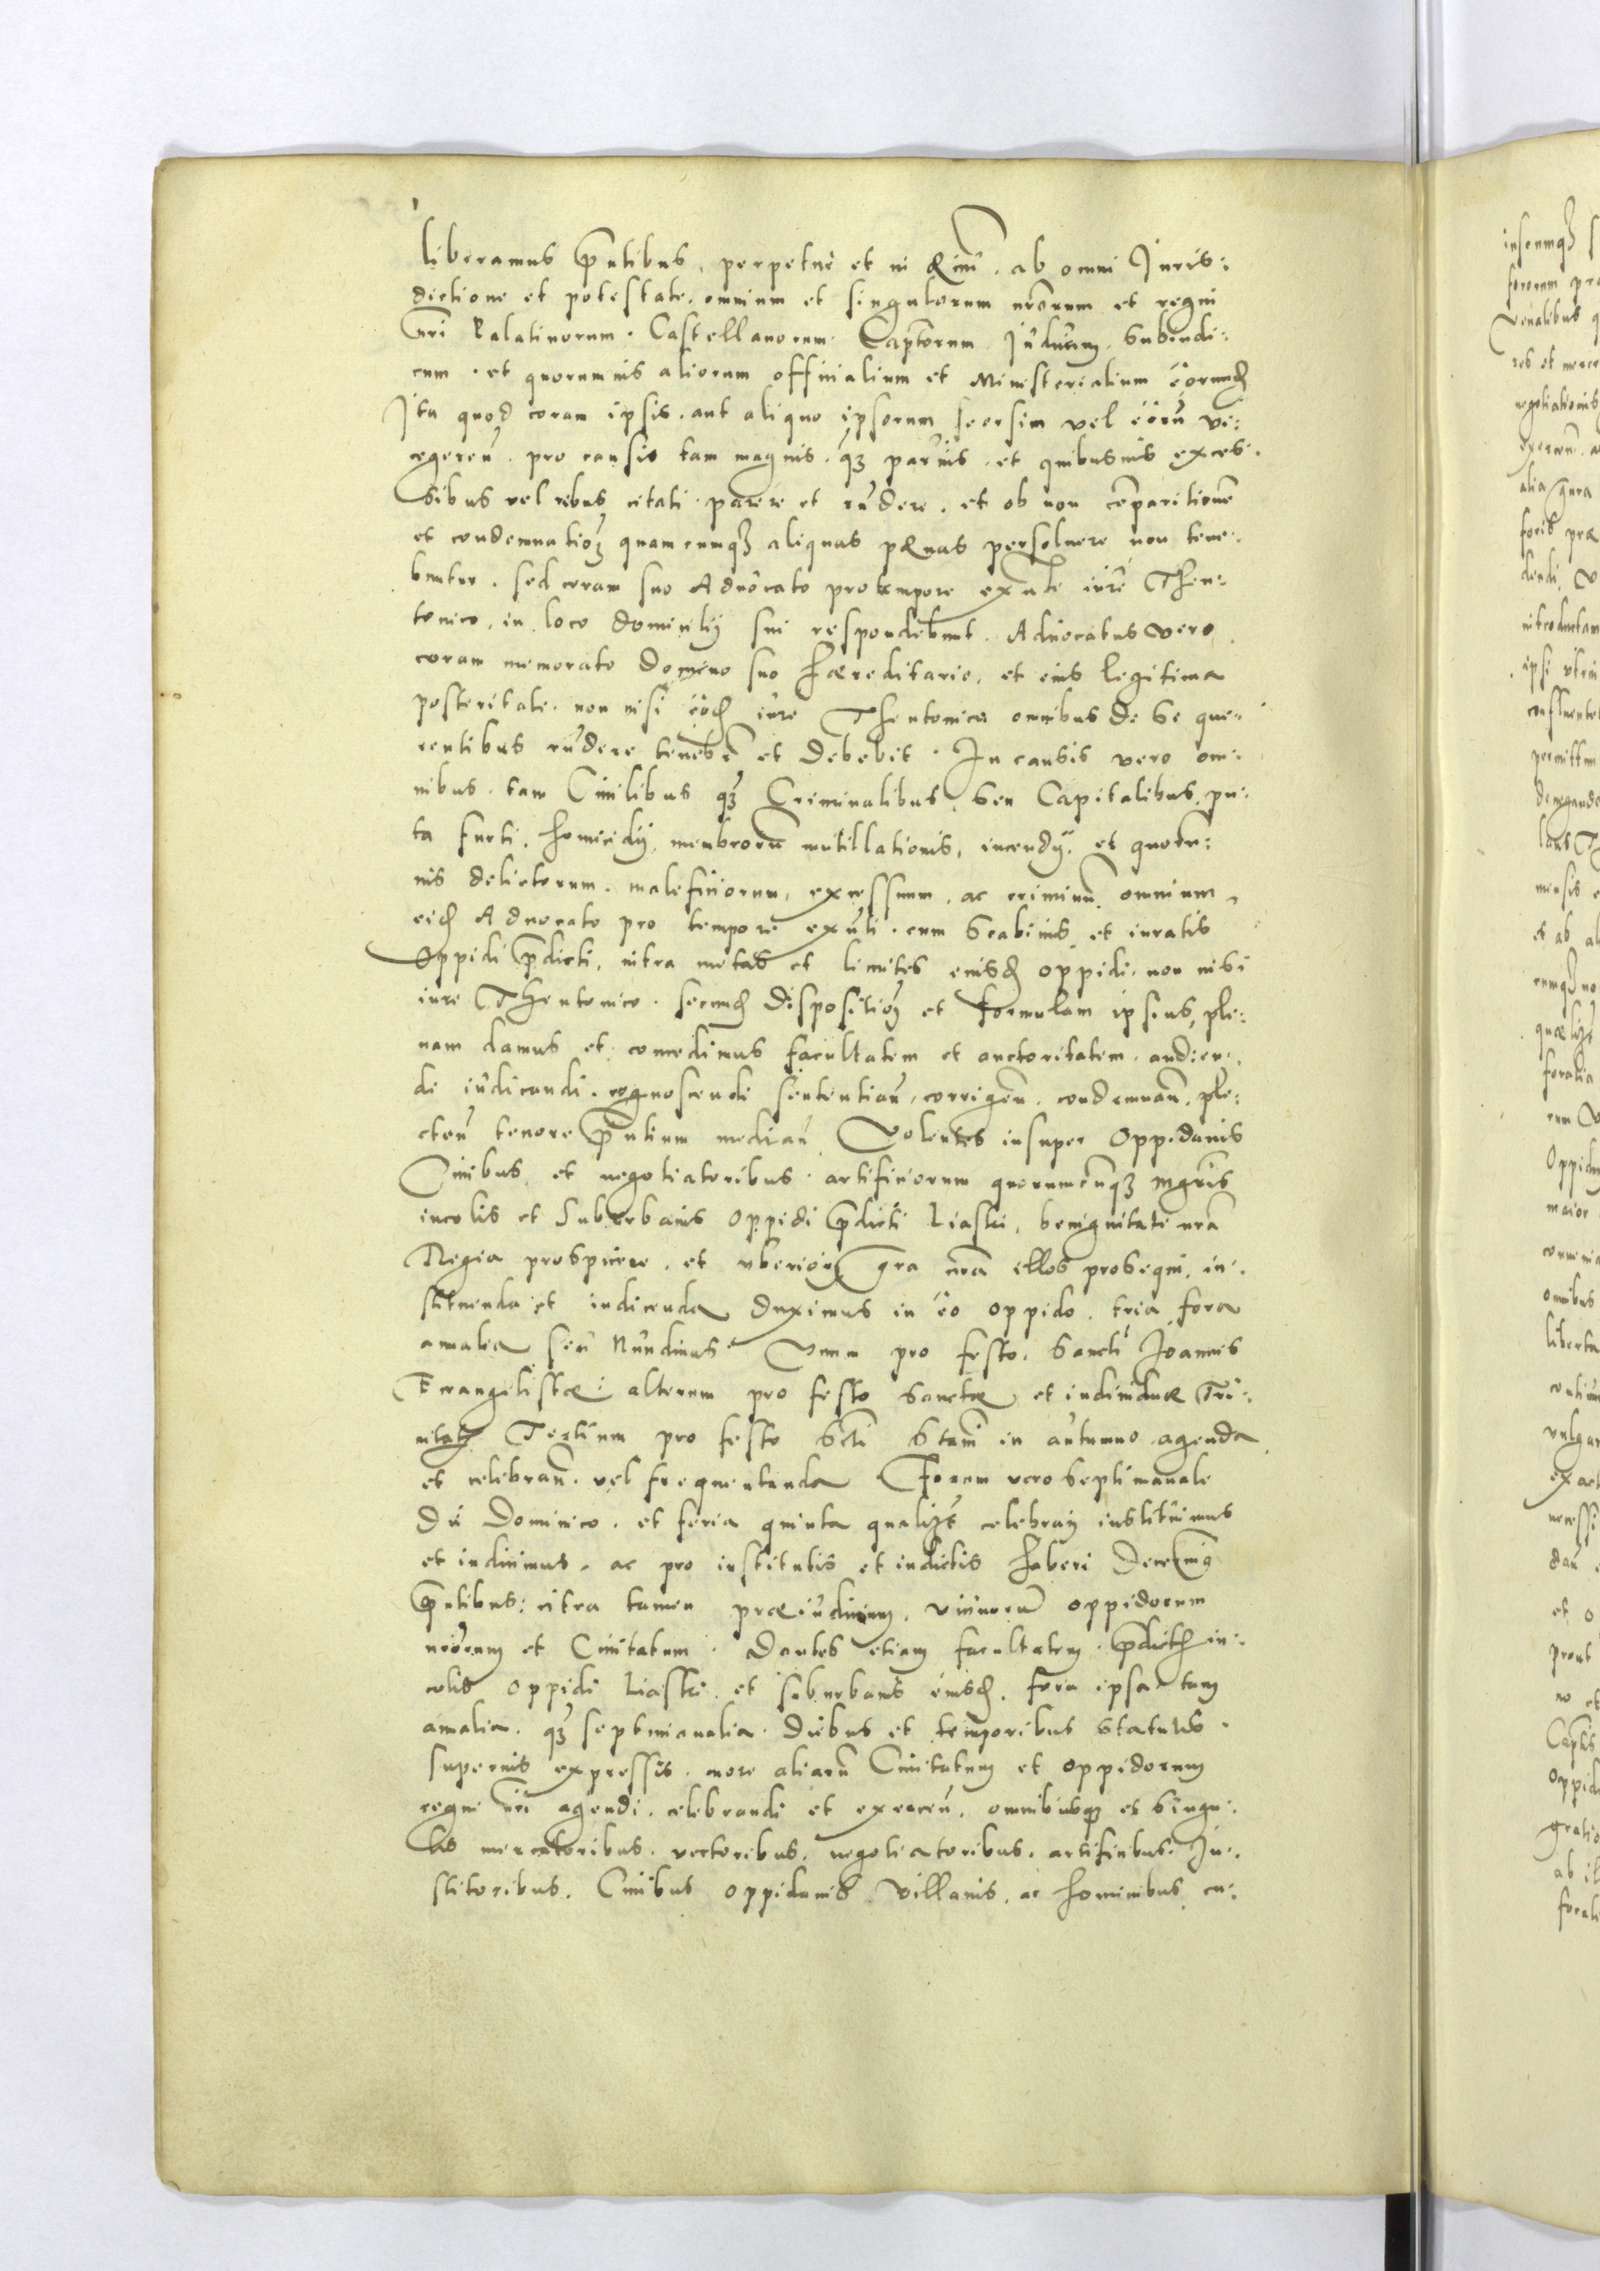 liberamus pñtibus, perpetuè et in æuũ. ab omni Juris:
dictione et potestate. omnium et singulorum nrorum et regni
nri Palatinorum. Castellanorum Captorum Judicum. Subiudi:
cum. et quorumuis aliorum officialium et Ministerialium eorund
Ita quod coram ipsis. aut aliquo ipsorum seorsim vel eorũ vi:
cegereñ. pro causis tam magnis. q̃ȝ paruis. et quibusuis exces:
sibus vel rebus citati parere et rñdere. et ob non cõparitionẽ
et condemnatioȝ quamcumqȝ aliquas pœnas persoluere non tene:
buntur. sed coram suo Aduocato protempore exñti iure Theu:
tonico, in loco domicilij sui respondebunt. Aduocatus vero
coram memorato Domino suo hæreditario, et eius legitima
posteritate. non nisi eod iure Theutonico omnibus de se que:
rentibus rñdere tenebit et debebit. In causis vero om:
nibus. tam Ciuilibus q̃ȝ Criminalibus, seu Capitalibus, pu:
ta furti, homicidij, membrorũ mutillationis, incendij, et quor:
uis delictorum. maleficiorum, excessuum, ac criminũ omnium
eid Aduocato pro tempore exñti. cum Scabinis et iuratis
Oppidi p̃dicti, intra metas et limites eiusd oppidi. non nisi
iure Theutonico. secund dispositioȝ et formulam ipsius, ple:
nam damus et concedimus facultatem et auctoritatem. audien:
di iudicandi. cognoscendi sententiañ, corrigeñ. condemnañ, ple:
cteñ tenore p̃ntium mediañ. Volentes insuper Oppidanis
Ciuibus, et negotiatoribus. artificiorum quorumcunqȝ mgris
incolis et Suburbanis Oppidi p̃dicti Liaski, benignitate nrã
Regia prospicere. et vberiori gra nrã illos prosequi, in:
stituenda et indicenda duximus in eo oppido. tria fora
annalia seu Nundinas Vnum pro festo. Sancti Joannis
Euangelistæ: alterum pro festo Sanctæ et indiuiduæ Tri:
nitatȝ Tertium pro festo Scti in autumno agenda
et celebrañ. vel frequentanda Forum vero septimanale
die Dominico. et feria quinta qualibet celebrari instituimus
et indicimus. ac pro institutis et indictis haberi decernimus
p̃ntibus: citra tamen præiudicium, vicinorũ oppidorum
nrorum et Ciuitatum. Dantes etiam facultatem. p̃dictis in:
colis Oppidi Liaski. et suburbanis eiusd. fora ipsa tam
annalia. q̃ȝ septimanalia. diebus et temporibus statutis.
superius expressis. more aliarũ Ciuitatum et oppidorum
regni nri agendi. celebrandi et exerceñ. omnibusqȝ et singu:
lis mercatoribus. vectoribus. negotiatoribus. artificibus. In:
stitoribus. Ciuibus oppidanis. villanis. ac hominibus. cu: